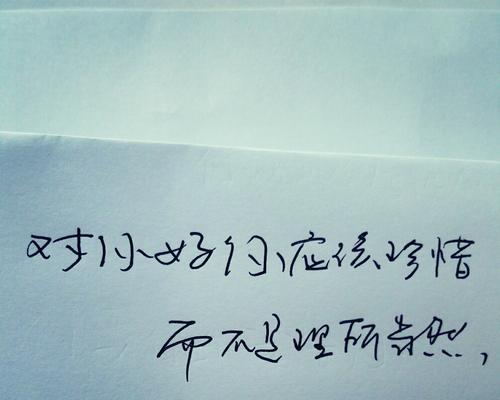 对你好的人应该珍惜
而不是理所当然，